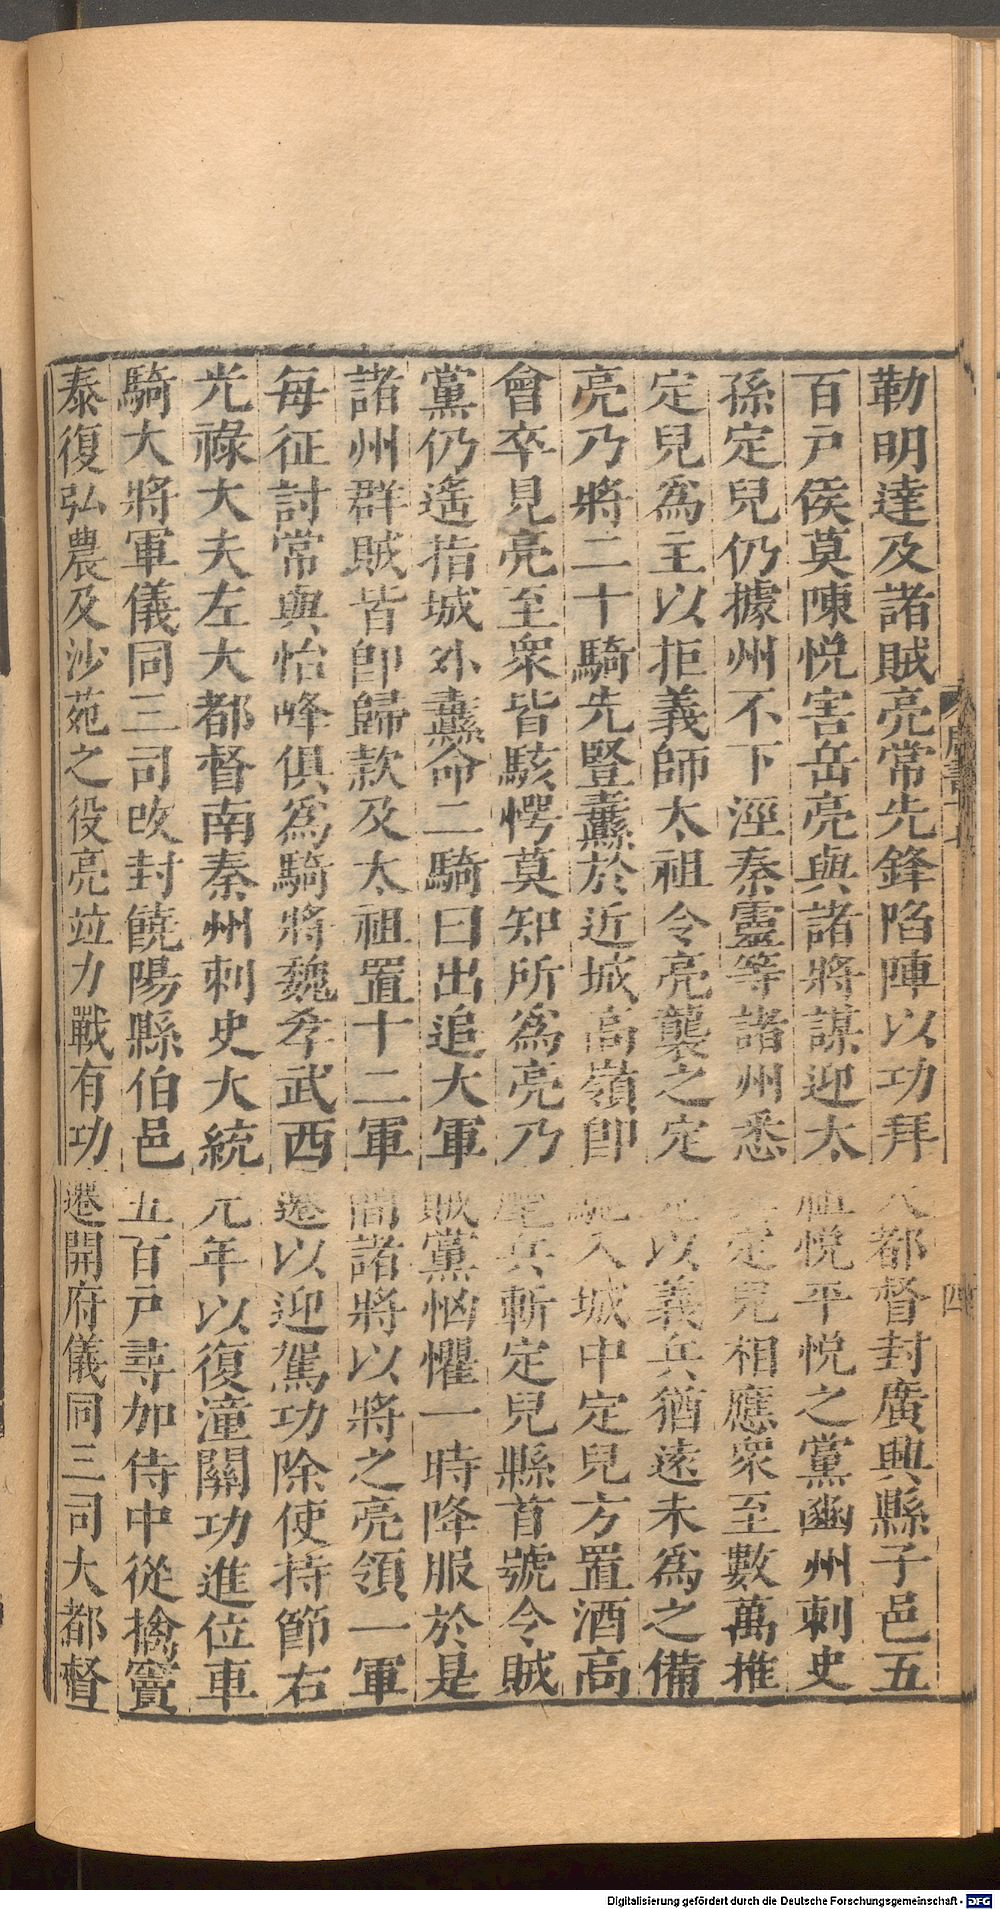 勒明達及諸賊亮常先鋒陷陣以功拜大都督封廣興縣子邑五
百戸侯莫陳悅害岳亮與諸將謀迎太祖悅平悅之黨豳州刺史
孫定兒仍據州不下涇秦靈等諸州悉與定兒相應衆至數萬推
定兒爲主以拒義師太祖令亮襲之定兒以義兵猶遠未爲之備
亮乃將二十騎先豎纛於近城高嶺即馳入城中定兒方置酒高
會卒見亮至衆皆駭愕莫知所爲亮乃麾兵斬定兒縣首號令賊
黨仍遙指城外纛命二騎曰出追大軍賊黨忷懼一時降服於是
諸州群賊皆即歸款及太祖置十二軍簡諸將以將之亮領一軍
每征討常與怡峰俱爲騎將魏孝武西遷以迎駕功除使持節右
光祿大夫左大都督南秦州刺史大統元年以復潼關功進位車
騎大將軍儀同三司改封饒陽縣伯邑五百戸尋加侍中從擒竇
泰復弘農及沙苑之役亮竝力戰有功遷開府儀同三司大都督
周書十七
四
Digitalisierung gefördert durch die Deutsche Forschungsgemeinschaft - DFG